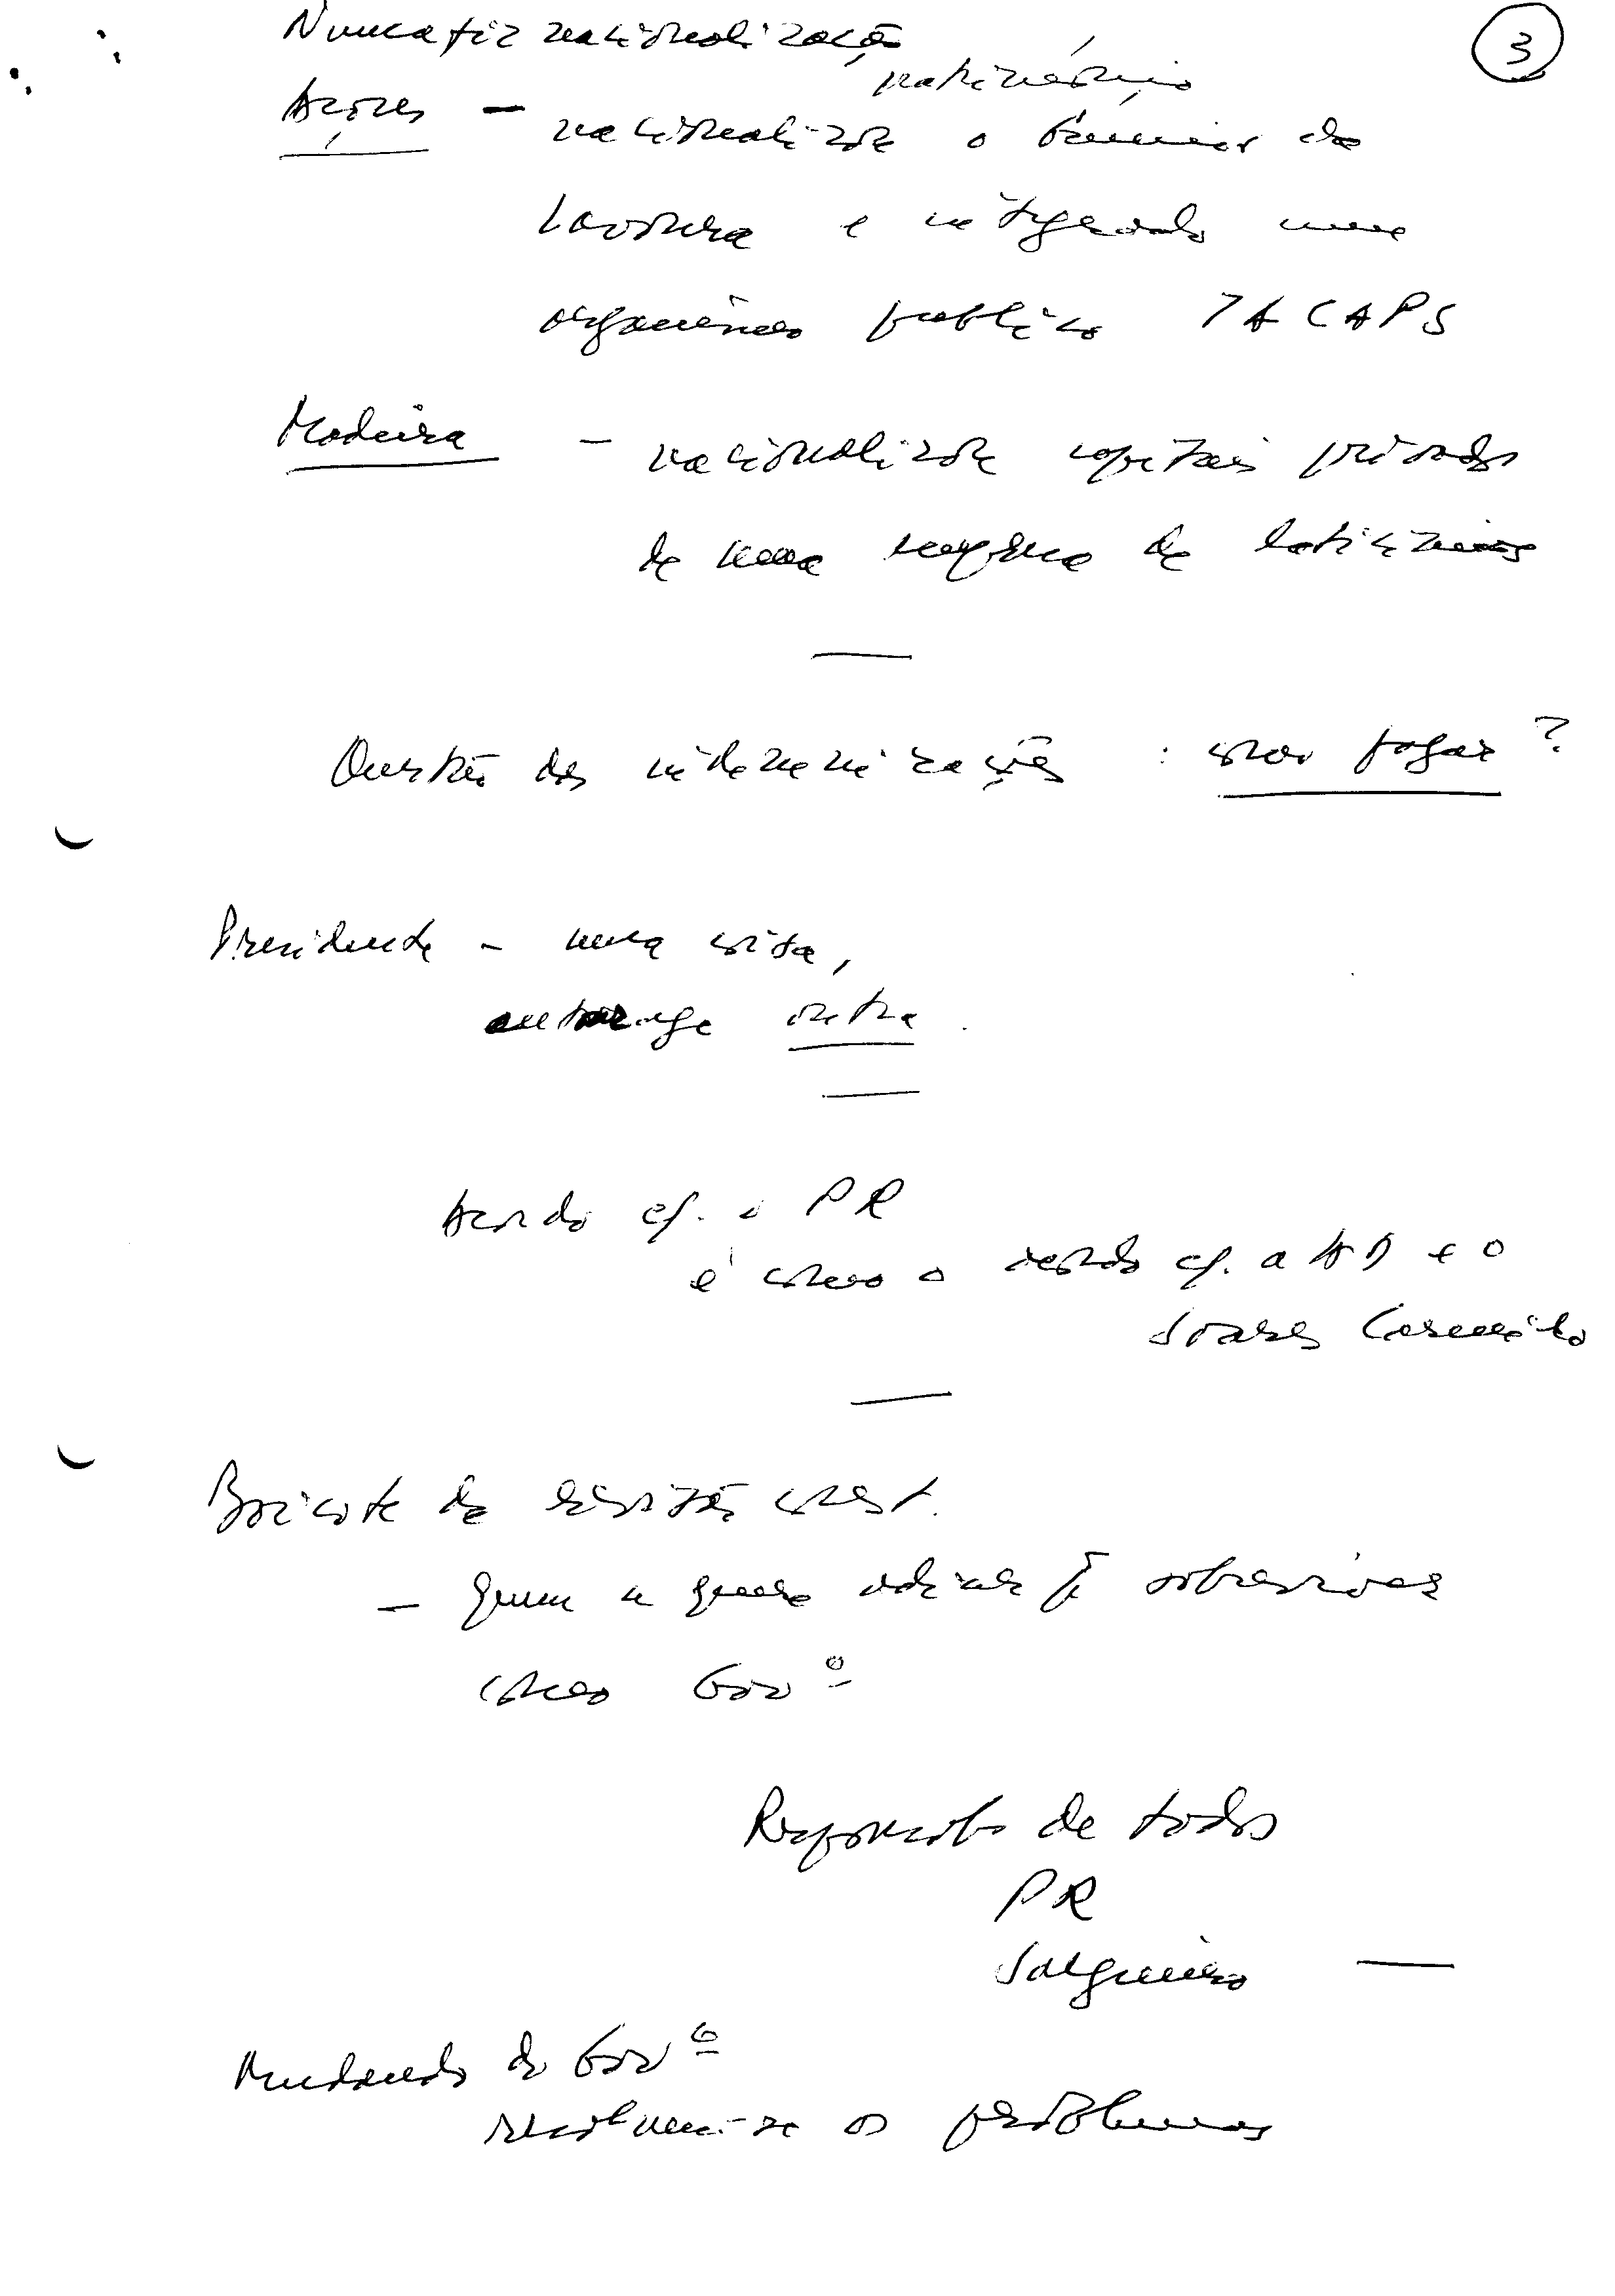 3
Nunca fiz nacionalização
património
Açores — nacionalizou o Grémio da
lavoura e integrado num
organismo publico IACAPS
Madeira — nacionalizou capitais privados
de uma empresa de lacticinios
Questão das indemnizações : como pagar ?
Presidente – uma coisa,
entourage outra.
Acordo c/. o PR
é como o acordo c/. a AD e o
Soares Carneiro
Boicote da revisão const.
— quem a quer adiar p/ sobreviver
como Govº
Responsab. de todos
PR
Salgueiro —
Mudando de Govº
resolvem-se os problemas